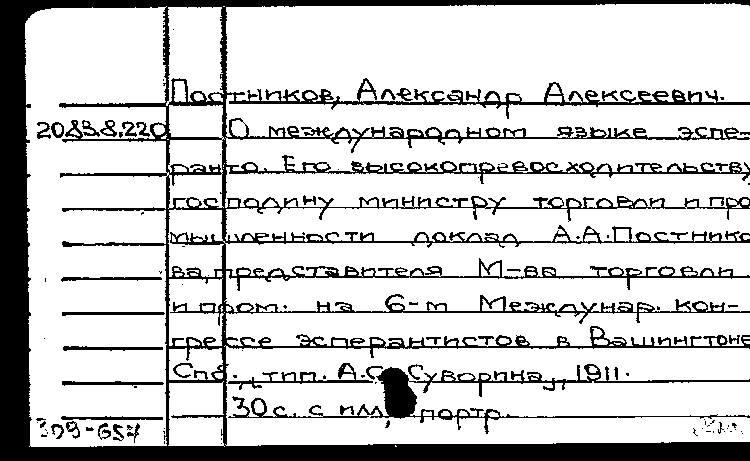 Постников, Александр Алексеевич.
20.83.8.220 О международном языке эспе-
ранто. Его высокопревосходительству
господину министру торговли и про
мышленности доклад А.А.Постнико
ва, представителя М-ва торговли
и пром. на 6-м Междунар. кон-
грессе эсперантистов в Вашингтоне
Спб., "тип. А.С. Суворина", 1911.
30 с. с илл, портр.
309-657